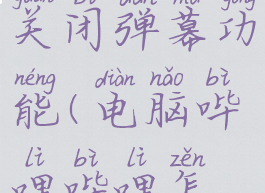 guān bì dàn mù gōng
关闭弹幕功
néng diàn nǎo bì
能(电脑哔
lì bì lì zěn
哩哔哩怎